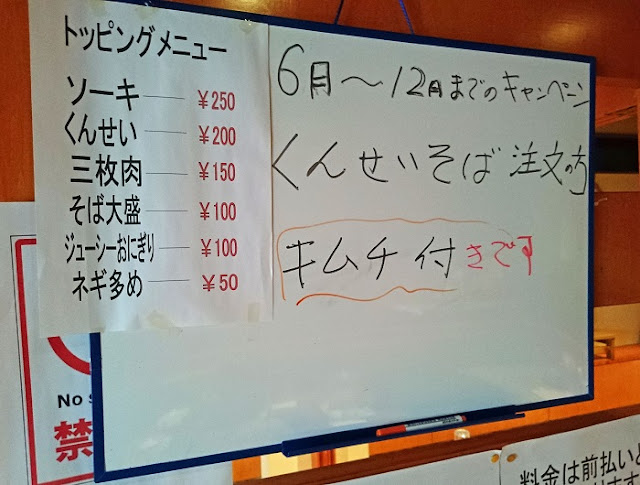 トッピングメニュー
ソーキ ¥250
くんせい ¥200
三枚肉 ¥150
そば大盛 ¥100
ジューシーおにぎり ¥100
ネギ多め ¥50
6月〜12月までのキャンペーン
くんせいそば 注文の方
キムチ付きです
No
禁
料金は前払いと